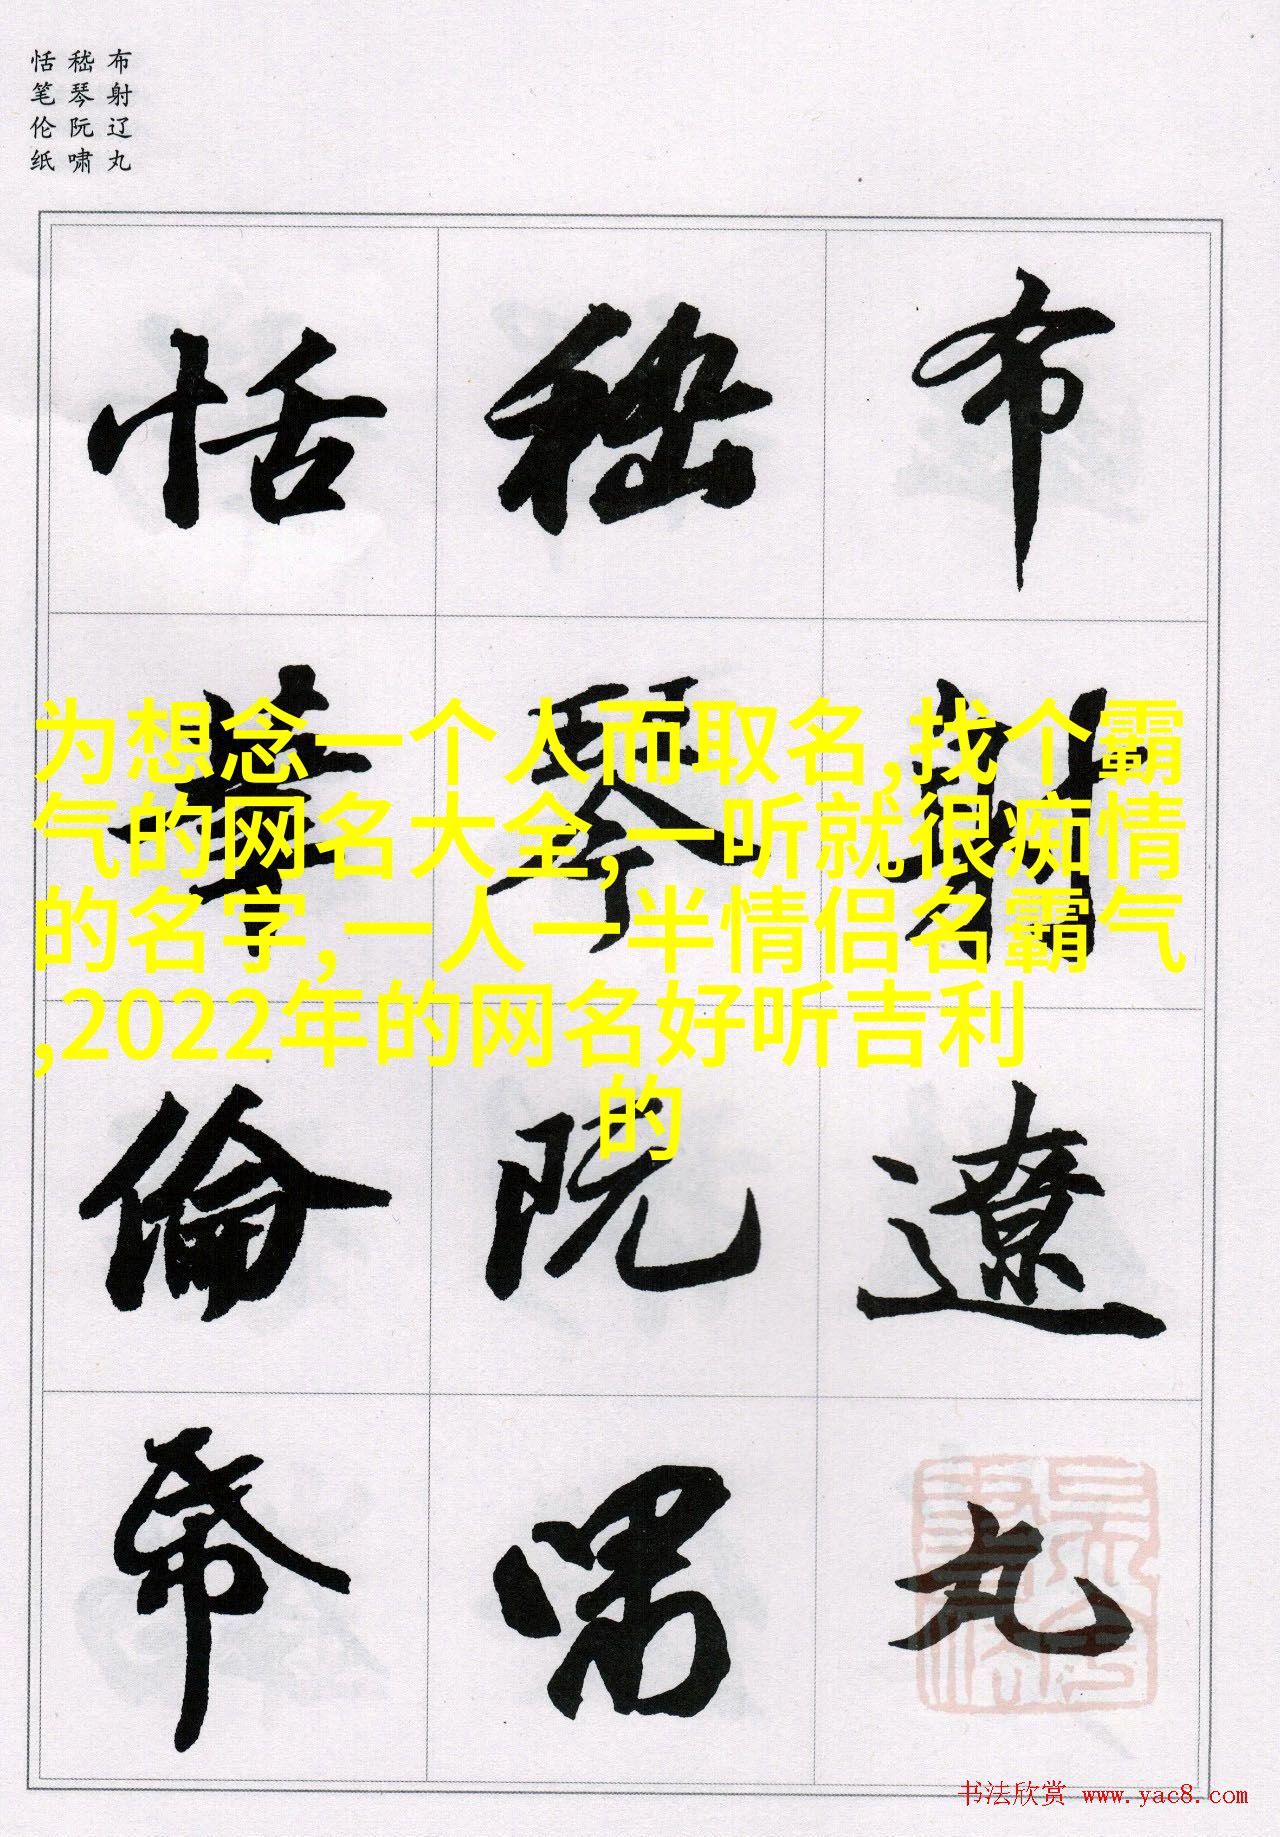 布射辽丸
嵇琴阮啸
恬笔伦纸
布
射
遼
丸
嵇
琴
阮
嘯
恬
筆
倫
帋
为想念一个人而取名,找个霸
气的网名大全,一听就很痴情
的名字,一人一半情侣名霸气
,2022年的网名好听吉利
的
书法欣赏 www.yac8.com